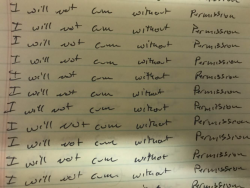 I will not cum without Permission
I will not cum without Permission
I will not cum without Permission
I will not cum without Permission
I will not cum without Permission
I will not cum without Permission
I will not cum without Permission
I will not cum without Permission
I will not cum without Permission
I will not cum without Permission
I will not cum without Permission